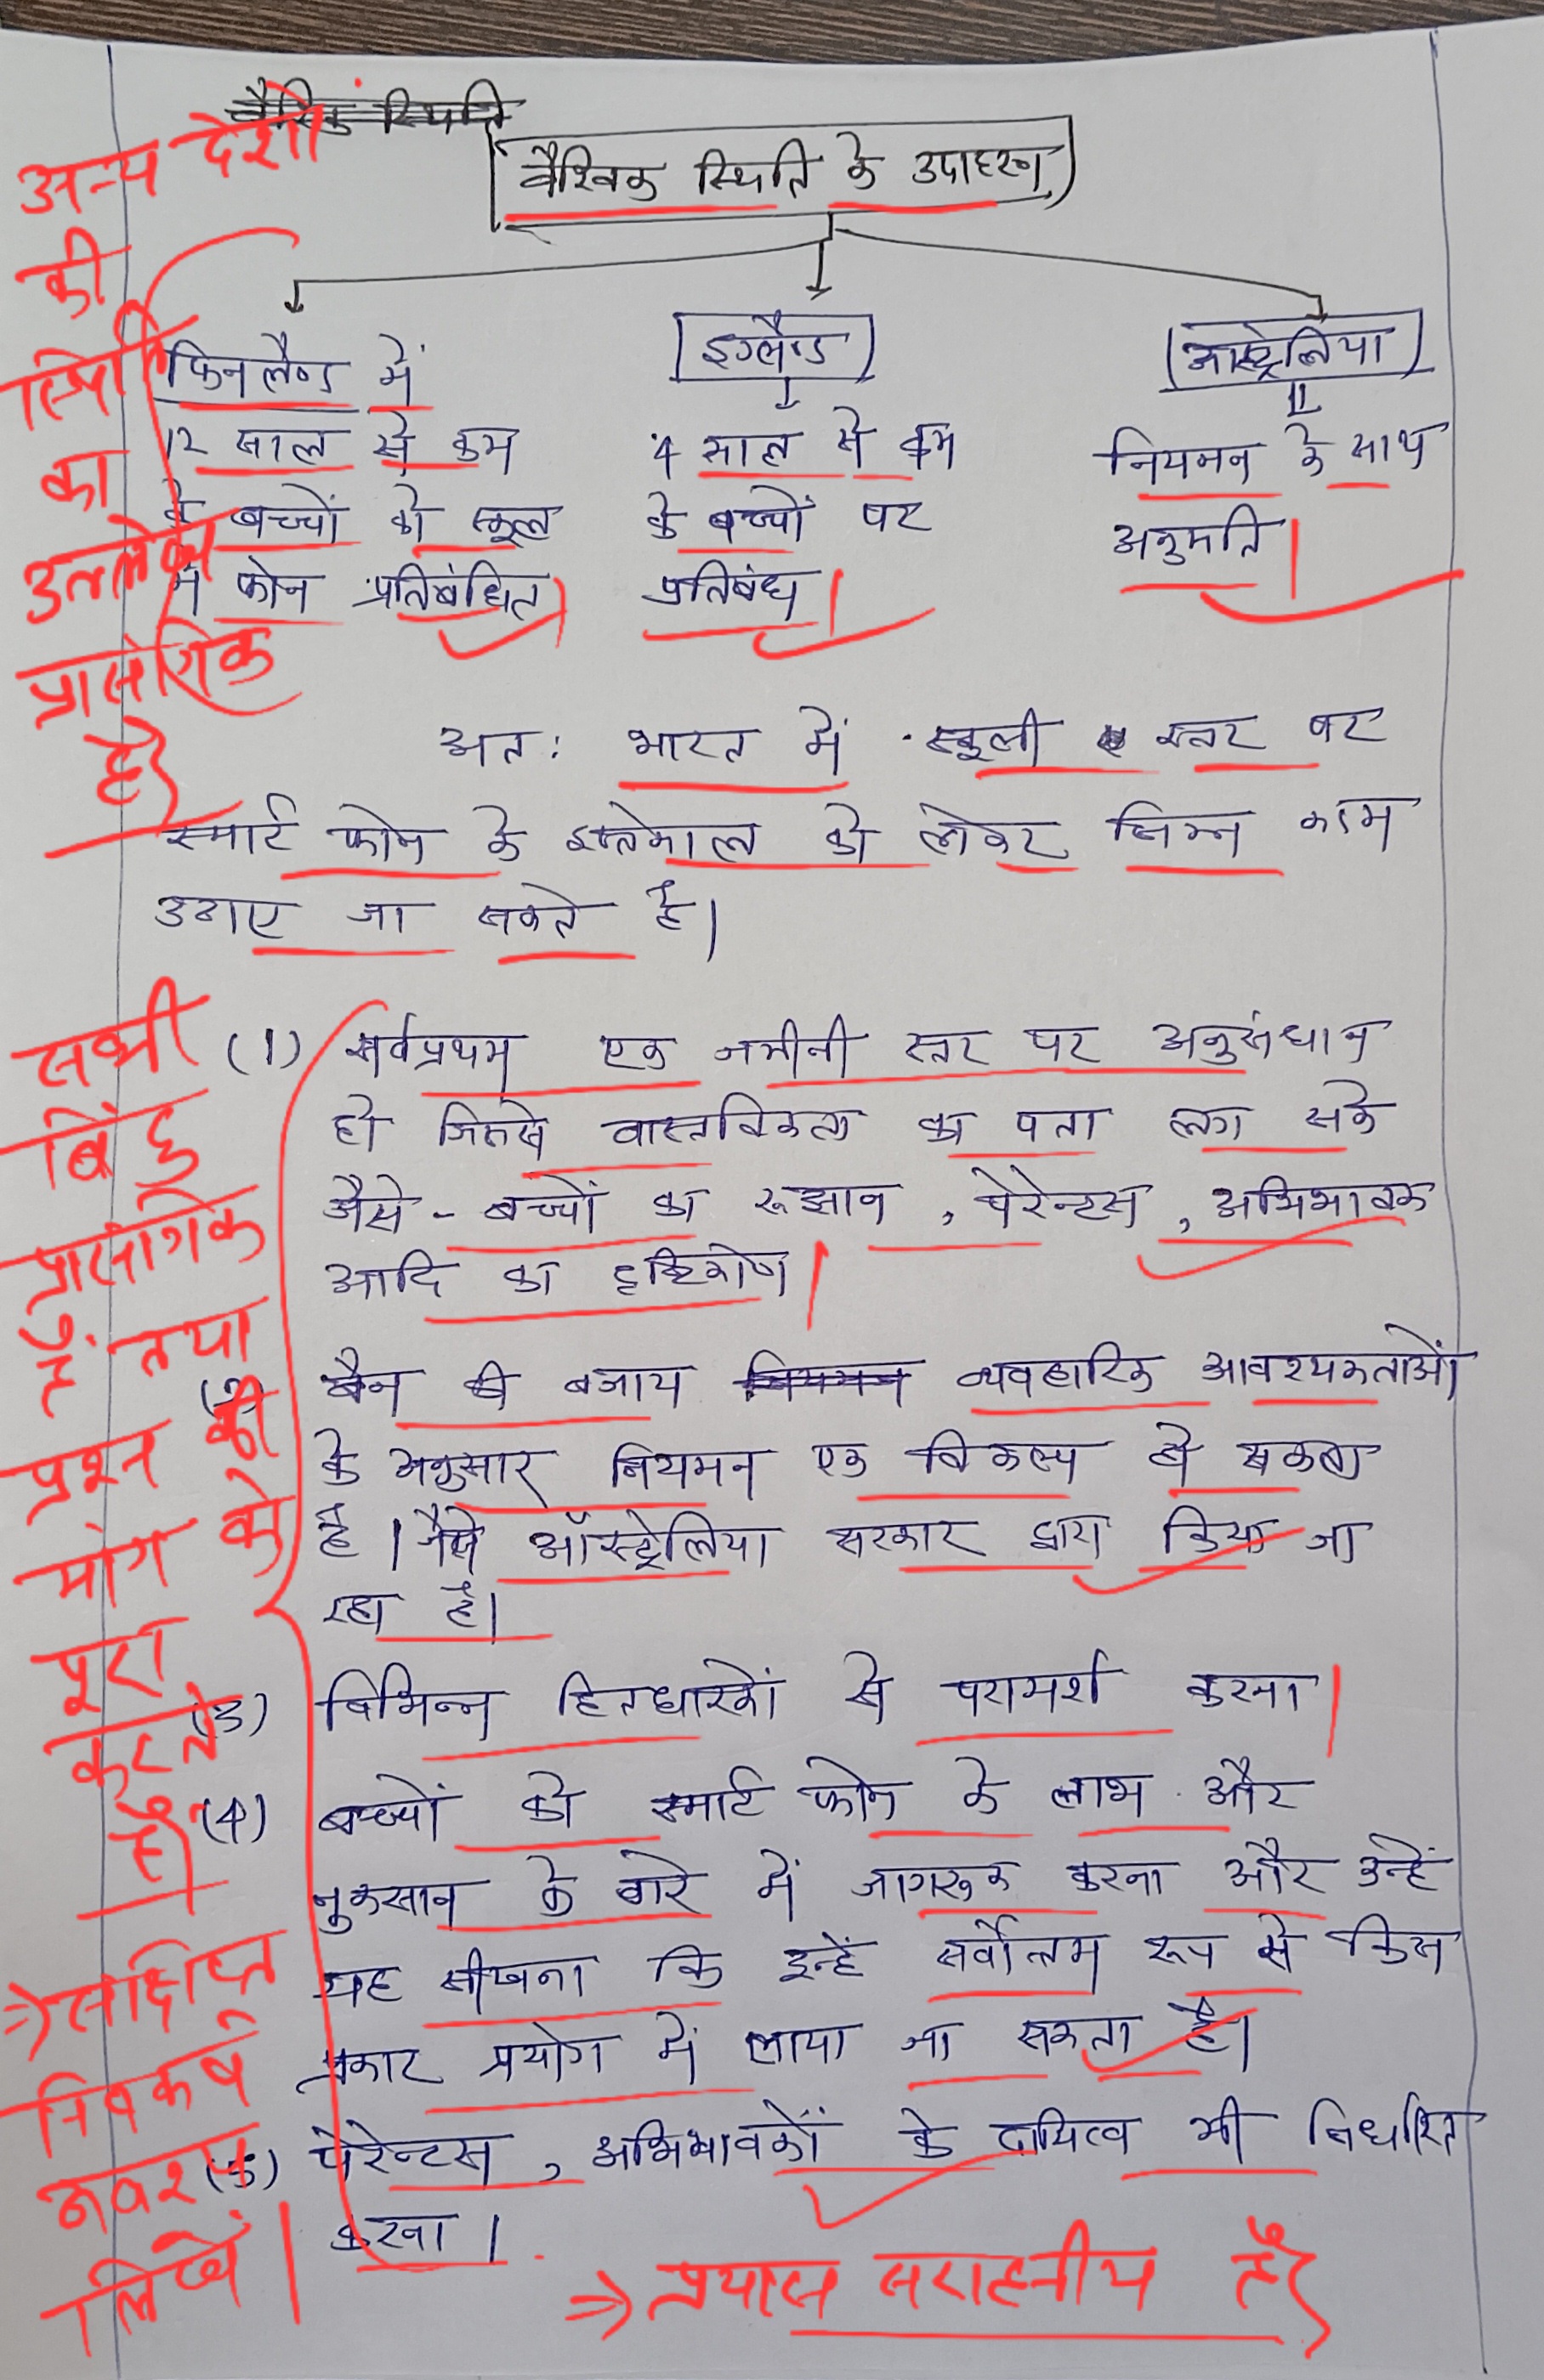 वैश्विक स्थिति
वैश्विक स्थिति के उदाहरण
फिनलैण्ड में
12 साल से कम
के बच्चों को स्कूल
में फोन प्रतिबंधित
इंग्लैण्ड
4 साल से कम
के बच्चों पर
प्रतिबंध।
आस्ट्रेलिया
नियमन के साथ
अनुमति।
अन्य देशों
की
स्थिति
का
उल्लेख
प्रासंगिक
है।
अतः भारत में स्कूली स्तर पर
स्मार्ट फोन के इस्तेमाल को लेकर निम्न कदम
उठाए जा सकते है।
(1) सर्वप्रथम एक जमीनी स्तर पर अनुसंधान
हो जिससे वास्तविकता का पता लग सके
जैसे - बच्चों का रूझान, पेरेन्टस, अभिभावक
आदि का दृष्टिकोण।
(2) बैन की बजाय नियमन व्यवहारिक आवश्यकताओं
के अनुसार नियमन एक विकल्प हो सकता
है। जैसे ऑस्ट्रेलिया सरकार द्वारा किया जा
रहा है।
(3) विभिन्न हितधारकों से परामर्श करना।
(4) बच्चों को स्मार्ट फोन के लाभ और
नुकसान के बारे में जागरूक करना और उन्हें
यह सीखना कि इन्हें सर्वोत्तम रूप से किस
प्रकार प्रयोग में लाया जा सकता है।
(5) पेरेन्टस, अभिभावकों के दायित्व भी निर्धारित
करना।
सभी
बिंदु
प्रासंगिक
हैं तथा
प्रश्न की
मांग को
पूरा
करते
हैं।
⇒ संक्षिप्त
निष्कर्ष
अवश्य
लिखें।
⇒ प्रयास सराहनीय है।